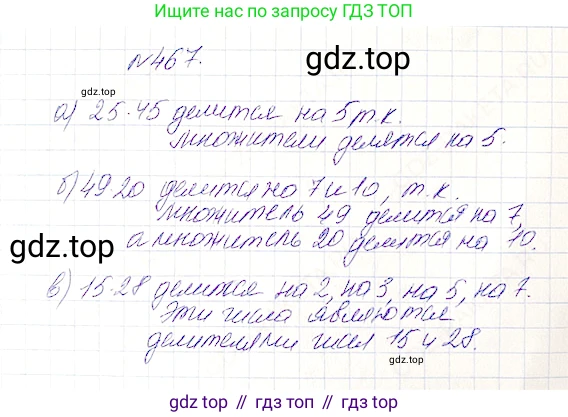 Ищите нас по запросу ГДЗ ТОП
№467.
gdz.top
gdz.top
а) 25·45 делится на 5 т.к.
множители делятся на 5.
б) 49 20 делится на 7 и 10, т.к.
множитель 49 делится на 7,
gdz.top
а множитель 20 делится на 10.
gdz.top
в) 15·28 делится на 2, на 3, на 5, на 7.
Эти числа являются
делителями чисел 15 и 28.
gdz.top
gdz.top
gdz.top // гдз топ // gdz top